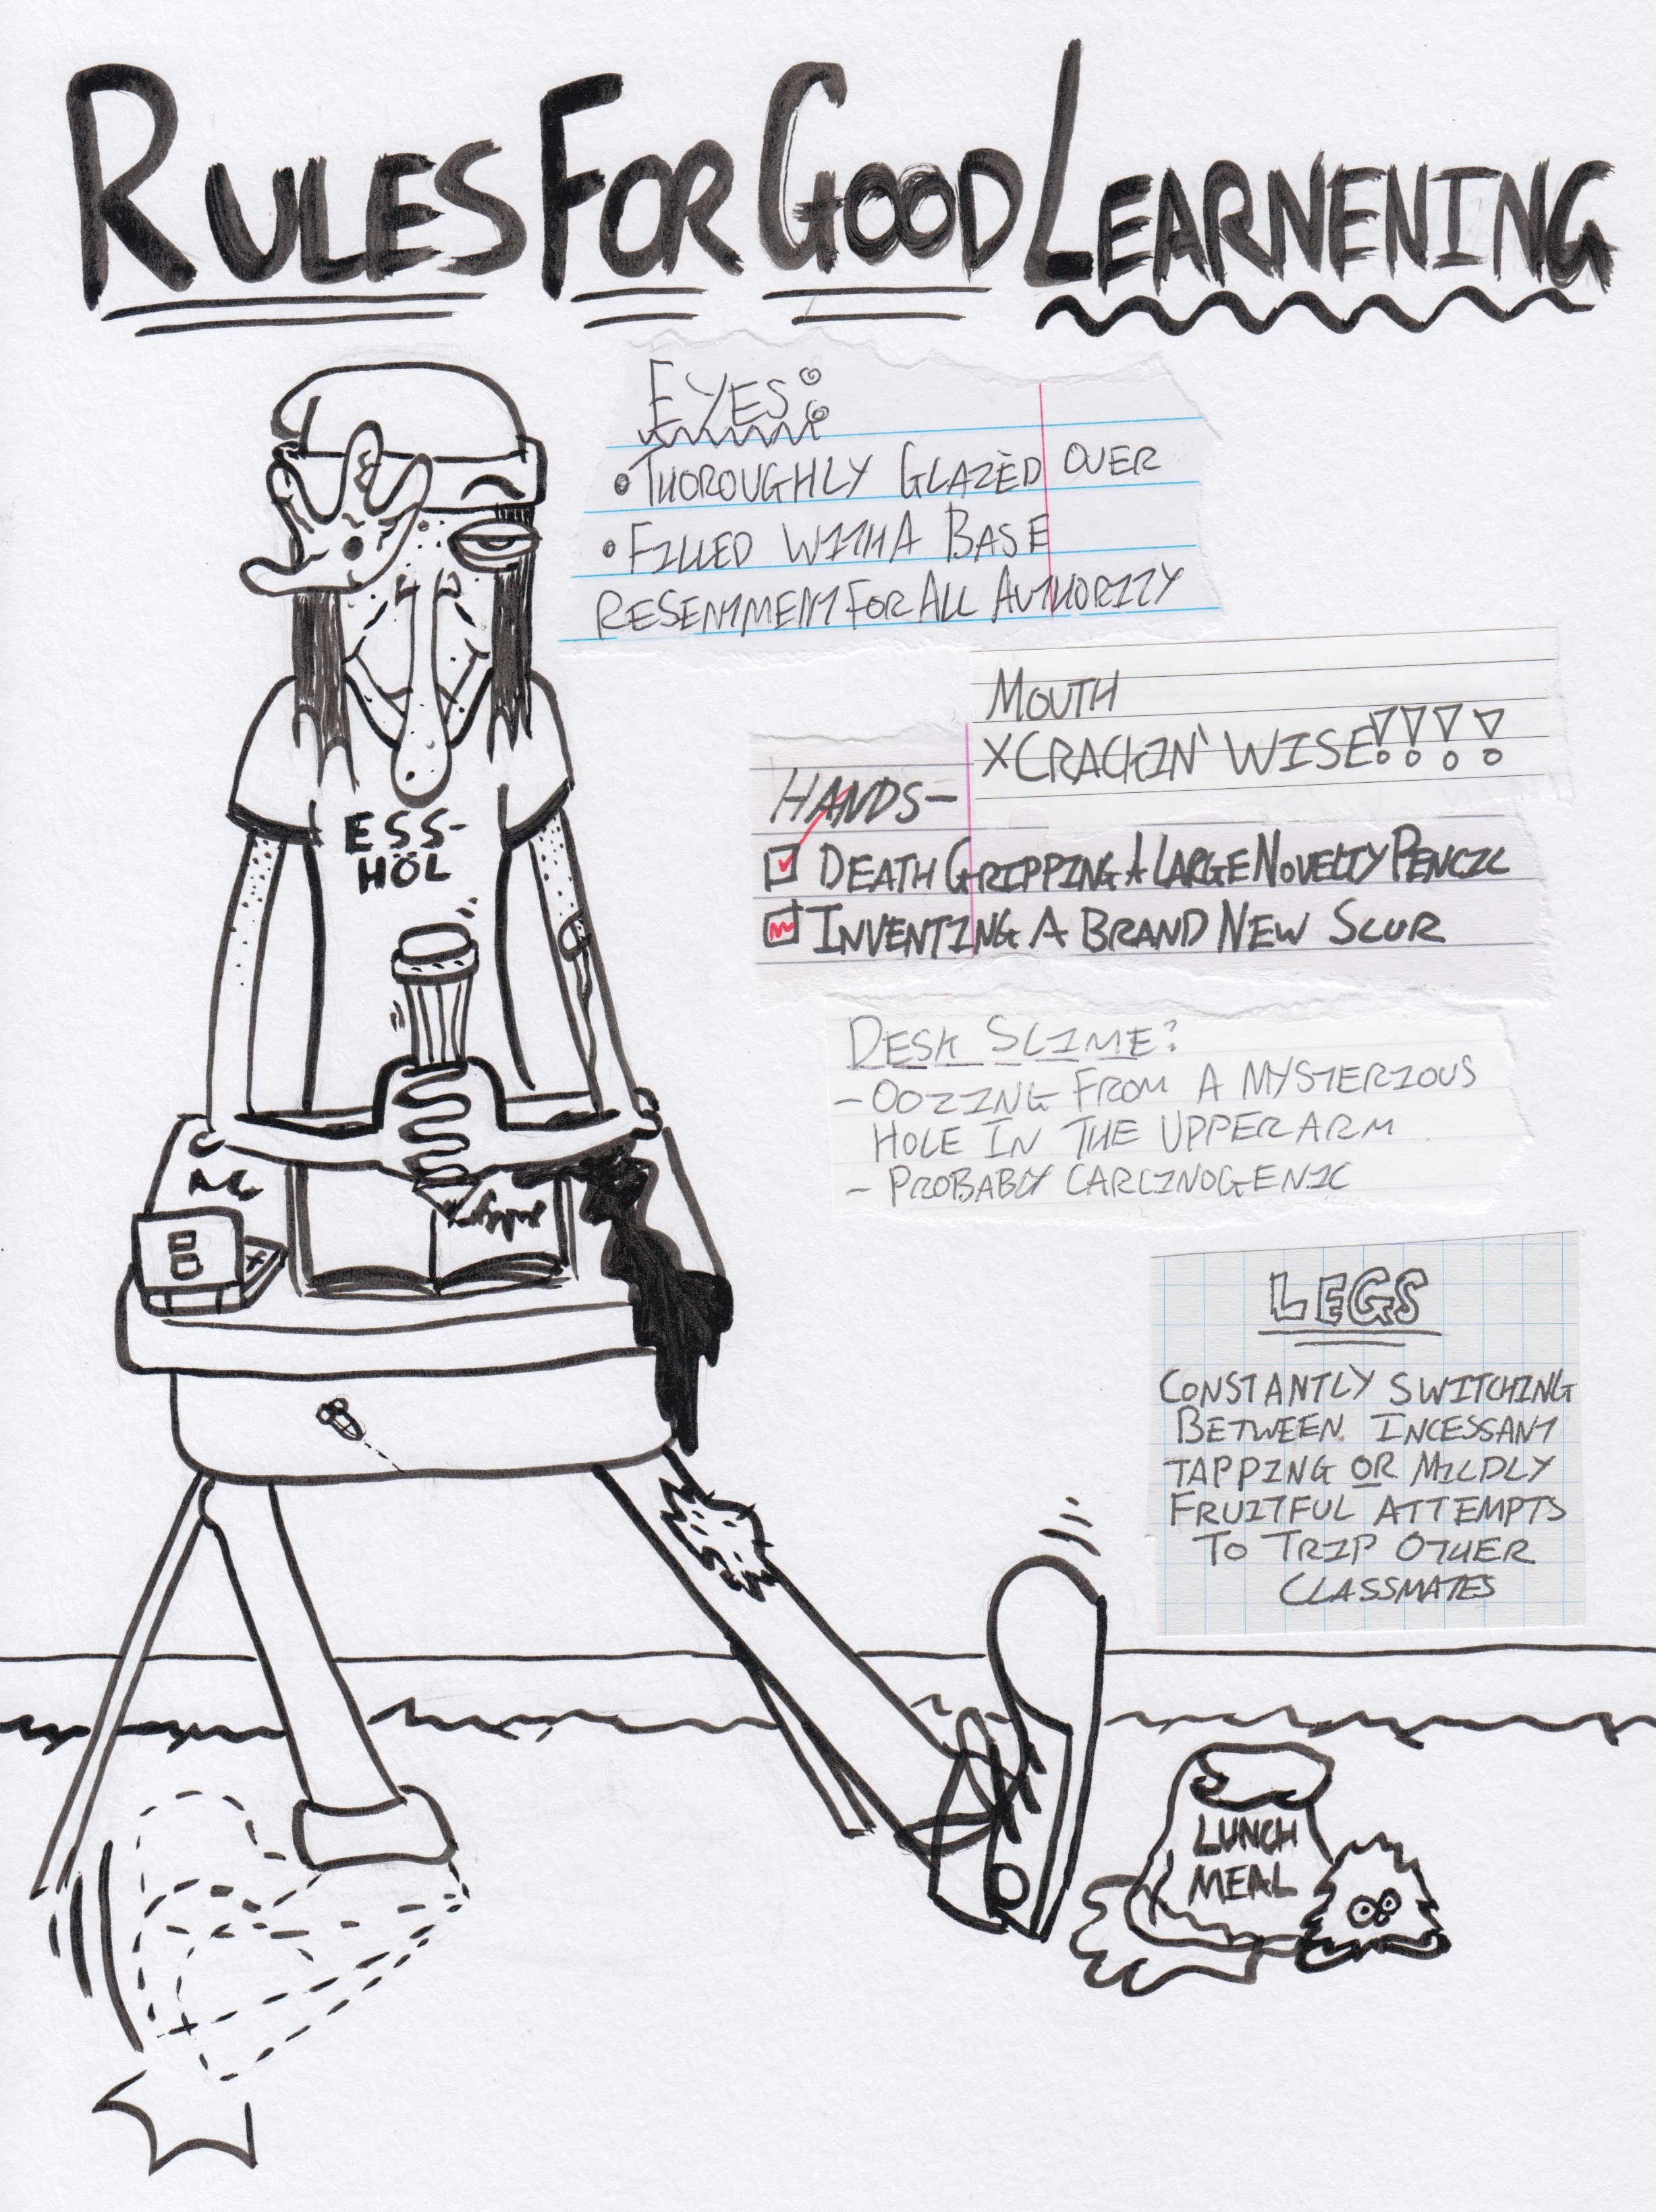 RULES FOR GOOD LEARNENING
EYES:
•THOROUGHLY GLAZÈD OVER
•FILLED WITH A BASE
RESENTMENT FOR ALL AUTHORITY
MOUTH
XCRACKIN' WISE!!!!
HANDS-
DEATH GRIPPING A LARGE NOVELTY PENCIL
INVENTING A BRAND NEW SLUR
ESS-
HÖL
DESK SLIME:
-OOZING FROM A MYSTERIOUS
HOLE IN THE UPPER ARM
- PROBABLY CARCINOGENIC
LEGS
CONSTANTLY SWITCHING
BETWEEN INCESSANT
TAPPING OR MILDLY
FRUITFUL ATTEMPTS
TO TRIP OTHER
CLASSMATES
LUNCH
MEAL